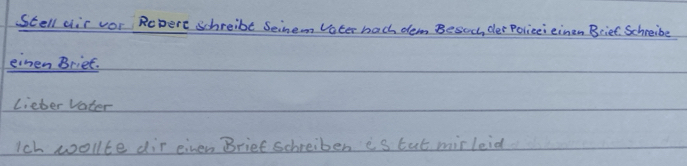 Stell dir vor Robert schreibt seinem Vater nach dem Besuch der Polizei einen Brief. Schreibe
einen Brief.
Lieber Vater
Ich wollte dir einen Brief schreiben es tut mir leid